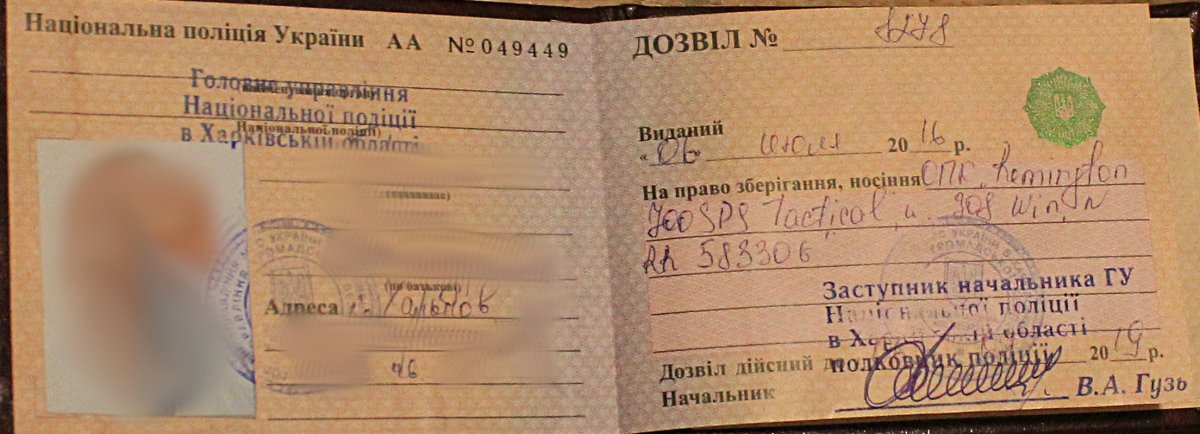 Національна поліція України АА №049449
Головне управління
Національної поліції
в Харківській області
(по батькові)
Адреса
46
ДОЗВІЛ №
Виданий
"06" июля 2016 р.
На право зберігання, носіння Remington
700 SPS Tactical, к. 308 Win, N
RR 583306
Заступник начальника ГУ
Національної поліції
в Харківській області
полковник поліції
Дозвіл дійсний до 2019 р.
Начальник В.А. Гузь